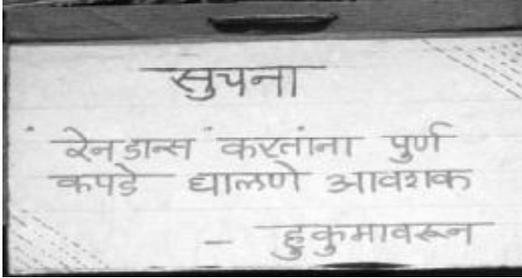 सुचना
"रेनडान्स" करतांना पुर्ण
कपडे घालणे आवशक
- हुकुमावरून